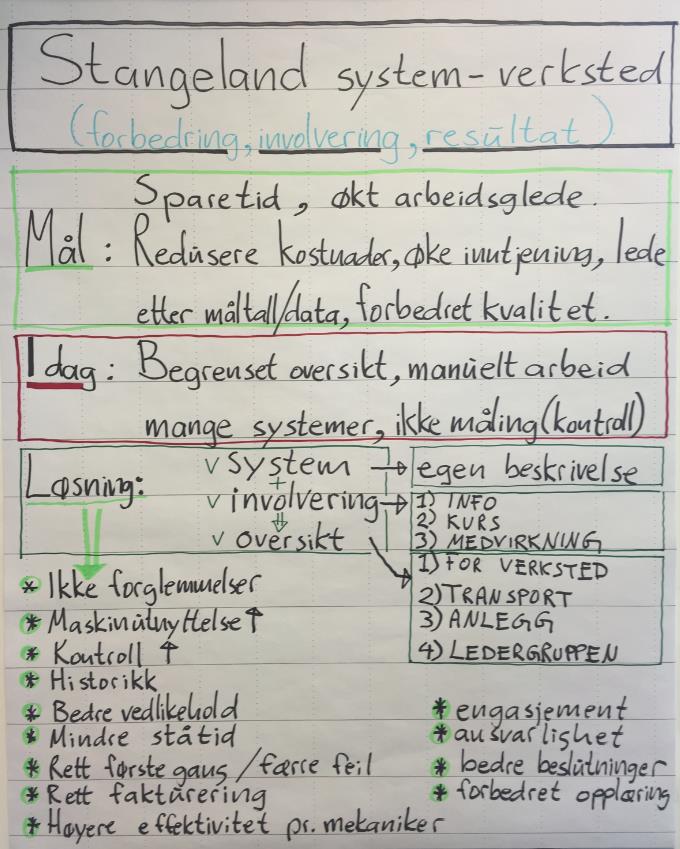 Stangeland system-verksted
(forbedring, involvering, resultat)
Sparetid, økt arbeidsglede.
Mål: Redusere kostnader, øke inntjening, lede
etter måltall/data, forbedret kvalitet.
I dag: Begrenset oversikt, manuelt arbeid
mange systemer, ikke måling (kontroll)
Løsning:
v system → egen beskrivelse
+
v involvering → 1) INFO
2) KURS
3) MEDVIRKNING
⇓
v oversikt → 1) FOR VERKSTED
2) TRANSPORT
3) ANLEGG
4) LEDERGRUPPEN
* Ikke forglemmelser
* Maskinutnyttelse ↑
* Kontroll ↑
* Historikk
* Bedre vedlikehold
* Mindre ståtid
* Rett første gang / færre feil
* Rett fakturering
* Høyere effektivitet pr. mekaniker
* engasjement
* ansvarlighet
* bedre beslutninger
* forbedret opplæring